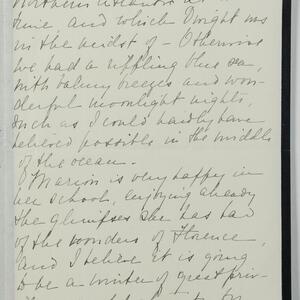 time and which Dwight was
in the midst of - Otherwise
we had a rippling blue sea,
with balmy breezes and won-
derful moonlight nights,
such as I could hardly have
believed possible in the middle
of the ocean.
Marion is very happy in
her school, enjoying already
the glimpses she has had
of the wonders of Florence,
and I believe it is going
to be a winter of great priv-